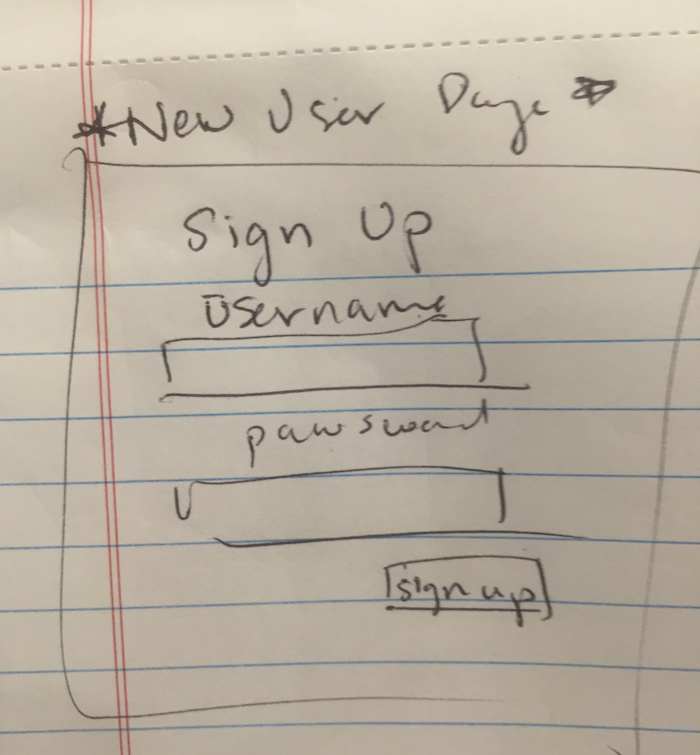 *New User Page*
Sign Up
Username
password
sign up